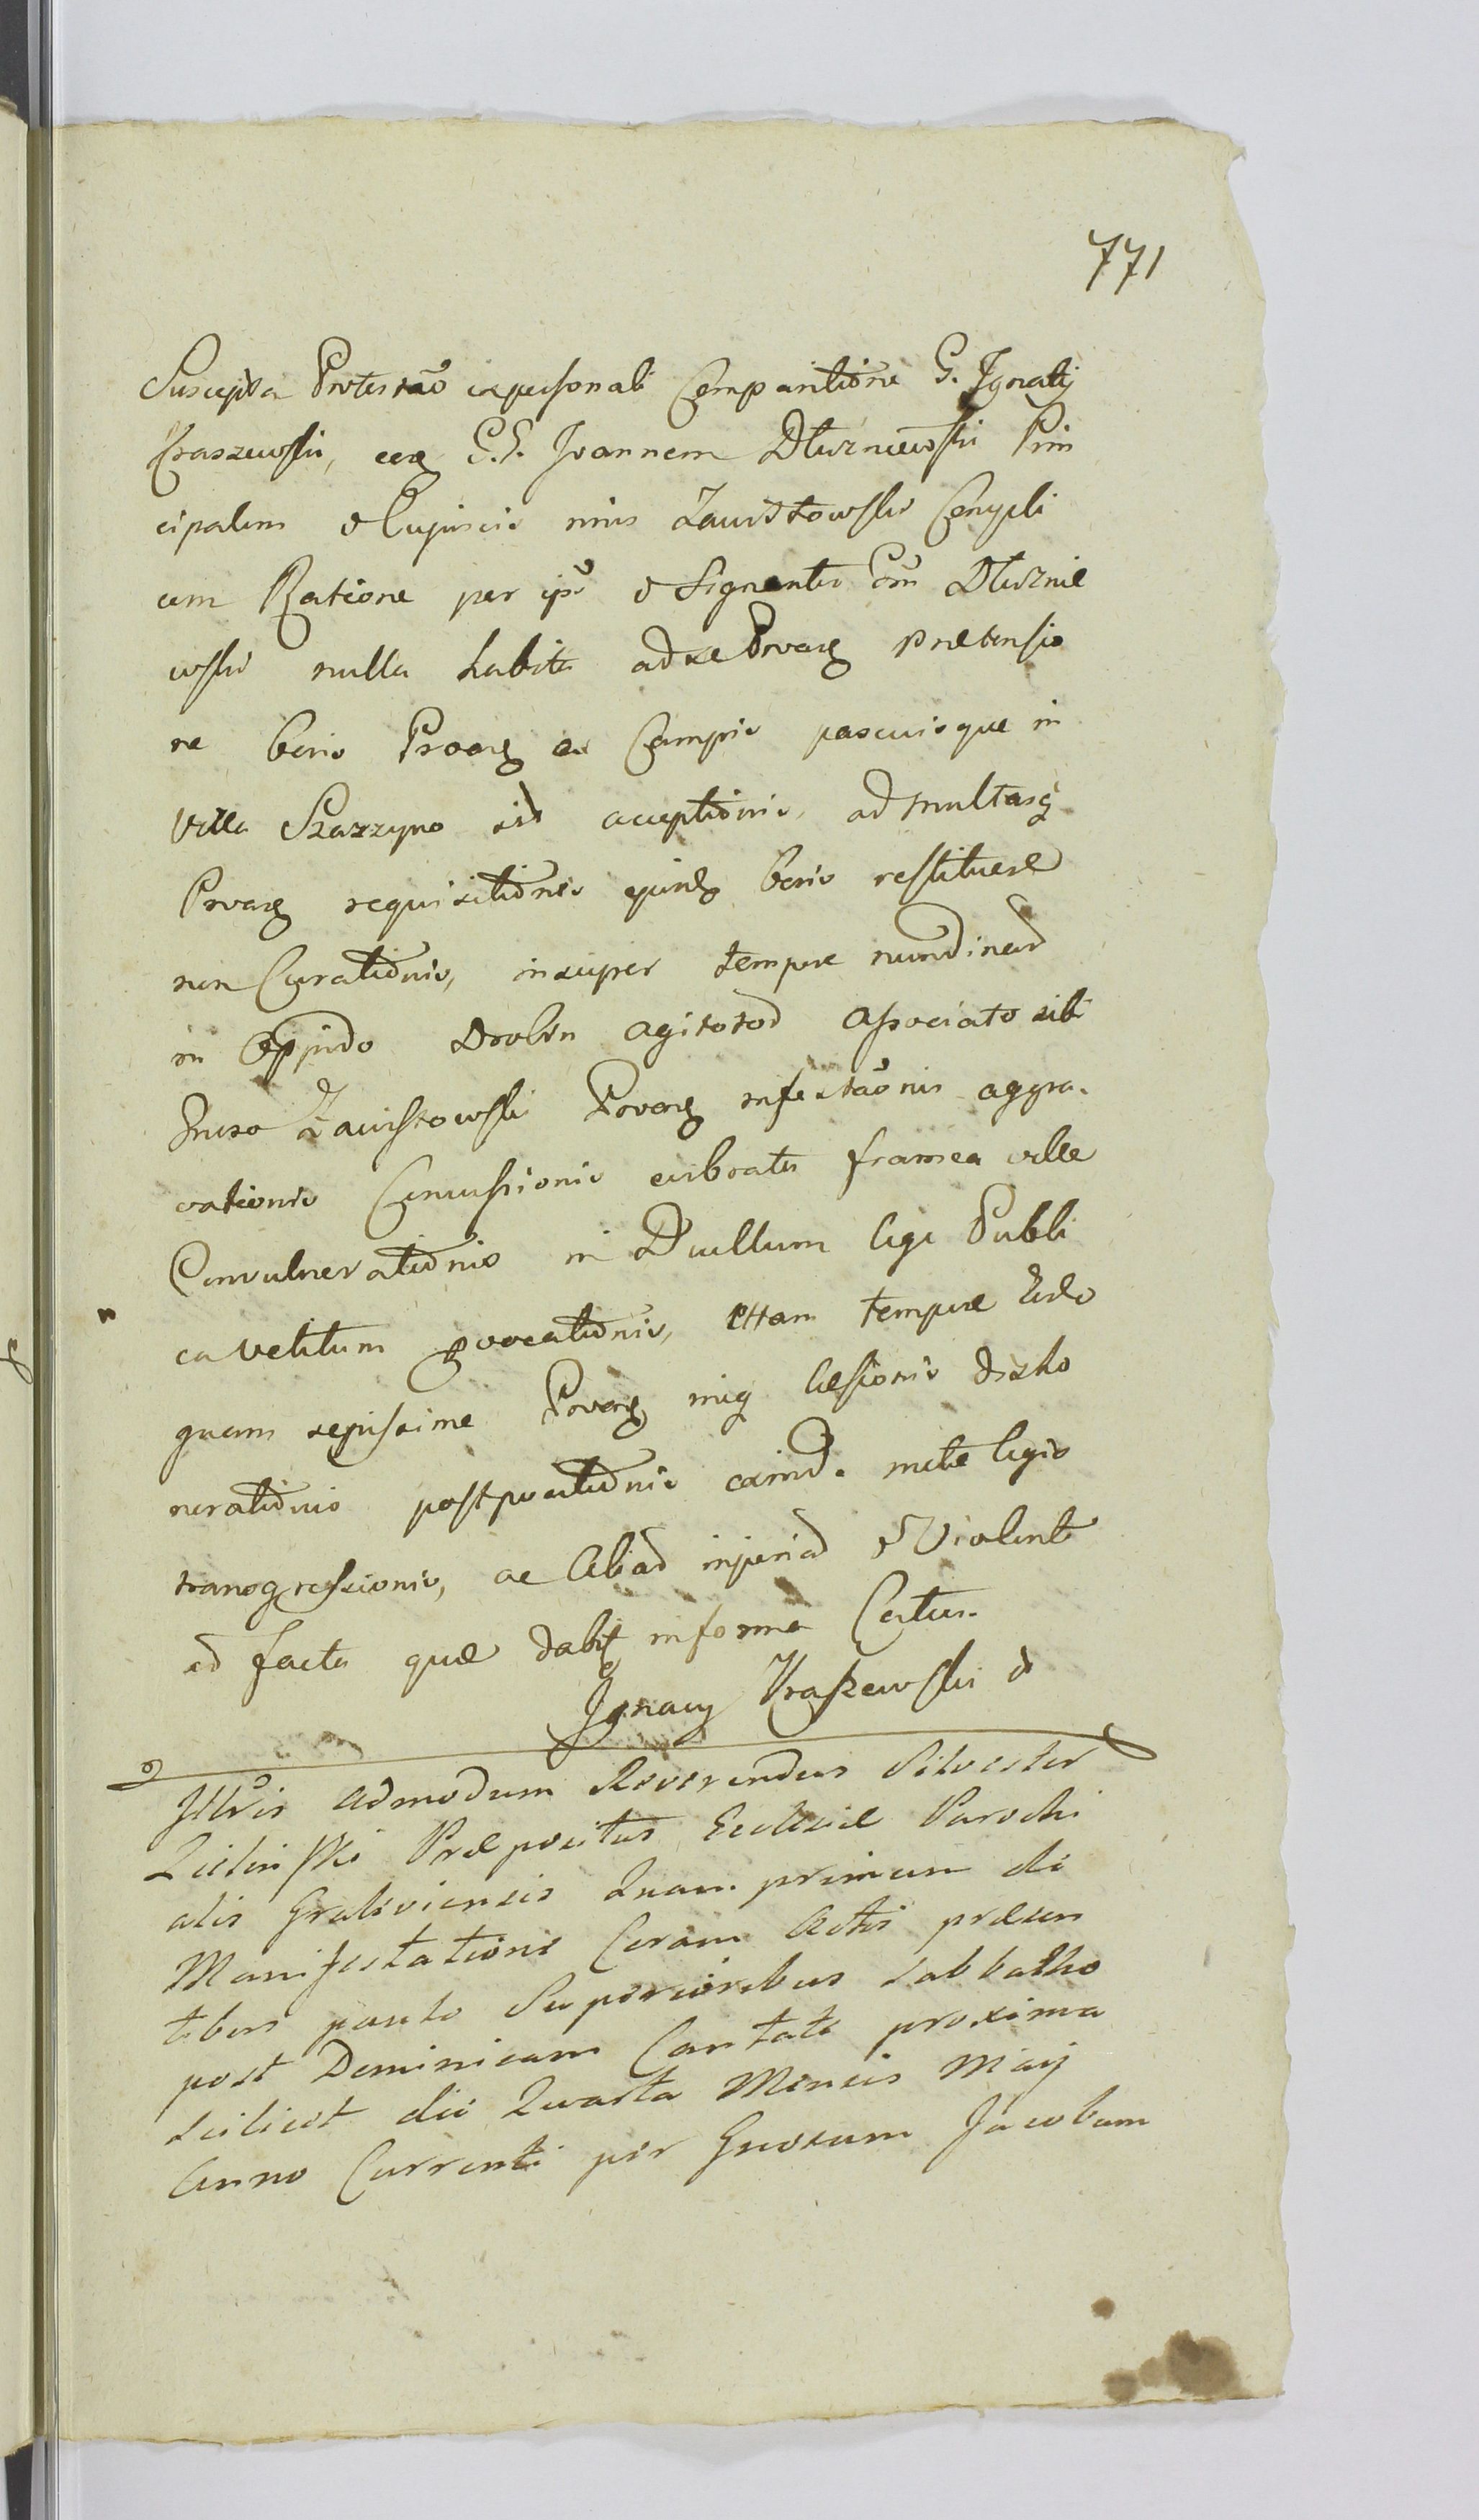 771
Suscepta Protestão ex personali Comparitione G. Ignatij
Kraszewski, ctra G.G. Joannem Dłuzniewski Prin
cipalem & Cujuscis nnis Zawistowski Compli
cem Ratione per ipm & signanter Gsm Dłuznie
wski nulla habita ad se Prnarg prætensio
ne bovis Prnarg ex Campis pascuisque in
Villa Skazzyno sit acceptionis, ad multasq
Prnarg requisitiones ejusdg bovis restituere
non Curationis, insuper tempore nundinard
in Oppido Drobin agitatod associato sibi
Gnoso Zawistowski Prnarg infestãonis aggra
vationis Concussionis evibrata framea velle
Convulnerationis in Duellum lege Publi
ca vetitum pvocationis, ettam tempore
quam sepissime Prnarg miq læsionis disho
norationis postpositionis eaind. mite legis
transgressionis, ac aliad injuriad & Violent
ad facta quæ dabit in forma Citus.
Ignacy Kraszewski
Jllris admodum Reverendus Silvester
Zielinski Præpositus Ecclesiæ Parochi
alis Gralieviensis Quam primum de
Manifestatione Coram Actis præsen
tibus paulo Superioribus Sabbatho
post Dominicam Cantate proxima
scilicet die Quarta Mensis Maij
Anno Currenti per Gnosum Jacobum